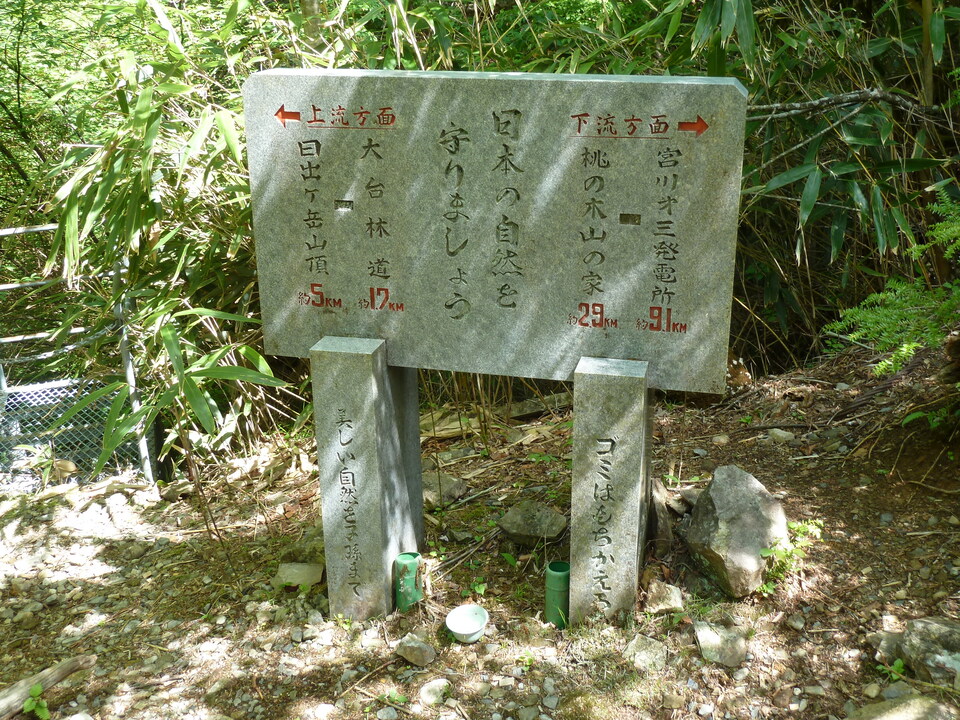 ← 上流方面
下流方面 →
宮川才三発電所
約9.1KM
桃の木山の家
約2.9KM
日本の自然を
守りましょう
大台林道
約1.7KM
日出ヶ岳山頂
約5KM
ゴミはもちかえろ
美しい自然を子孫まで